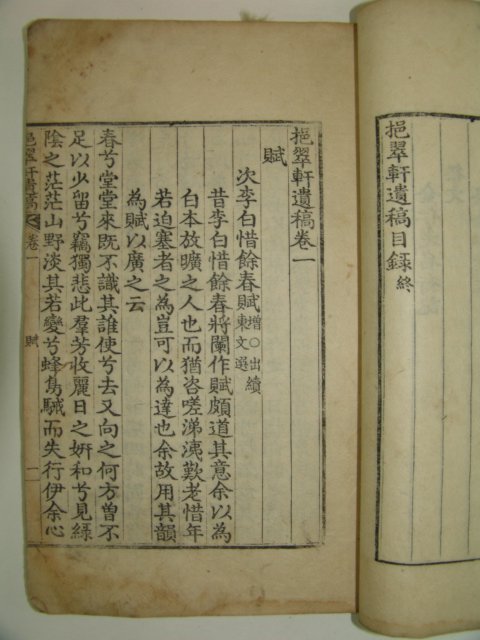 挹翠軒遺稿目錄終
挹翠軒遺稿卷一
賦
次李白惜餘春賦增○出續東文選
昔李白惜餘春將闌作賦頗道其意余以為
白本放曠之人也而猶咨嗟涕洟歎老惜年
若迫塞者之為豈可以為達也余故用其韻
為賦以廣之云
春兮堂堂來既不識其誰使兮去又向之何方曾不
足以少留兮竊獨悲此羣芳收麗日之姸和兮見綠
陰之茫茫山野淡其若變兮蜂雋駴而失行伊余心
挹翠軒遺稿 卷一 賦 一